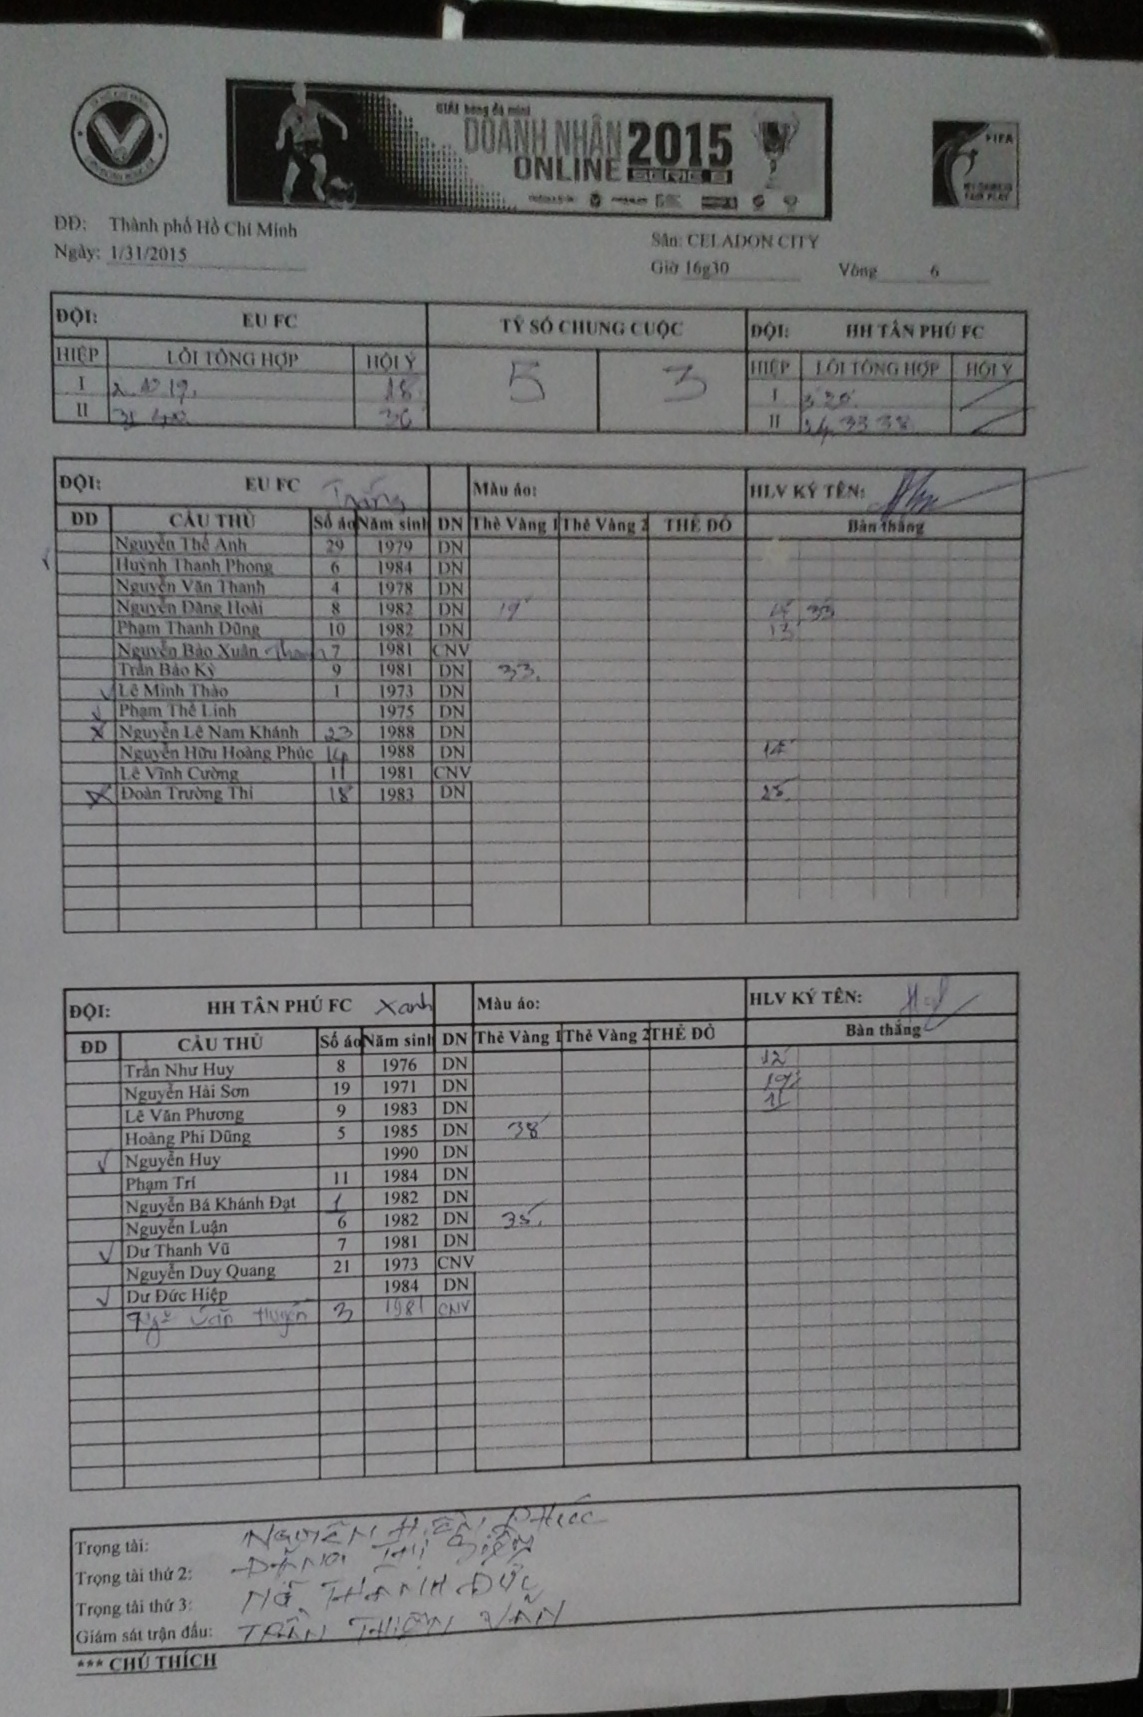 GIẢI bóng đá mini
DOANH NHÂN 2015
ONLINE SERIE B
FIFA
MY GAME IS
FAIR PLAY
ĐĐ: Thành phố Hồ Chí Minh
Sân: CELADON CITY
Ngày: 1/31/2015
Giờ 16g30 Vòng 6
ĐỘI: EU FC TỶ SỐ CHUNG CUỘC ĐỘI: HH TÂN PHÚ FC
HIỆP LỖI TỔNG HỢP HỘI Ý 5 3 HIỆP LỖI TỔNG HỢP HỘI Ý
I 18 I
II II 24 33 38
ĐỘI: EU FC Trắng Màu áo: HLV KÝ TÊN:
ĐD CẦU THỦ Số áo Năm sinh DN Thẻ Vàng 1 Thẻ Vàng 2 THẺ ĐỎ Bàn thắng
Nguyễn Thế Anh 29 1979 DN
Huỳnh Thanh Phong 6 1984 DN
Nguyễn Văn Thanh 4 1978 DN
Nguyễn Đăng Hoài 8 1982 DN 19 33
Phạm Thanh Dũng 10 1982 DN 13
Nguyễn Bảo Xuân Thanh 7 1981 CNV
Trần Bảo Kỳ 9 1981 DN 33
Lê Minh Thảo 1 1973 DN
Phạm Thế Linh 1975 DN
Nguyễn Lê Nam Khánh 23 1988 DN
Nguyễn Hữu Hoàng Phúc 14 1988 DN
Lê Vĩnh Cường 11 1981 CNV
Đoàn Trường Thi 18 1983 DN 25
ĐỘI: HH TÂN PHÚ FC Xanh Màu áo: HLV KÝ TÊN:
ĐD CẦU THỦ Số áo Năm sinh DN Thẻ Vàng 1 Thẻ Vàng 2 THẺ ĐỎ Bàn thắng
Trần Như Huy 8 1976 DN 12
Nguyễn Hải Sơn 19 1971 DN
Lê Văn Phương 9 1983 DN
Hoàng Phi Dũng 5 1985 DN 38
Nguyễn Huy 1990 DN
Phạm Trí 11 1984 DN
Nguyễn Bá Khánh Đạt 1 1982 DN
Nguyễn Luận 6 1982 DN 35
Dư Thanh Vũ 7 1981 DN
Nguyễn Duy Quang 21 1973 CNV
Dư Đức Hiệp 1984 DN
Ngô Văn 3 1981 CNV
Trọng tài: NGUYỄN HIỀN PHÚC
Trọng tài thứ 2: ĐẶNG THỊ
Trọng tài thứ 3: THÀNH ĐỨC
Giám sát trận đấu: TRẦN THIỆN VĂN
*** CHÚ THÍCH